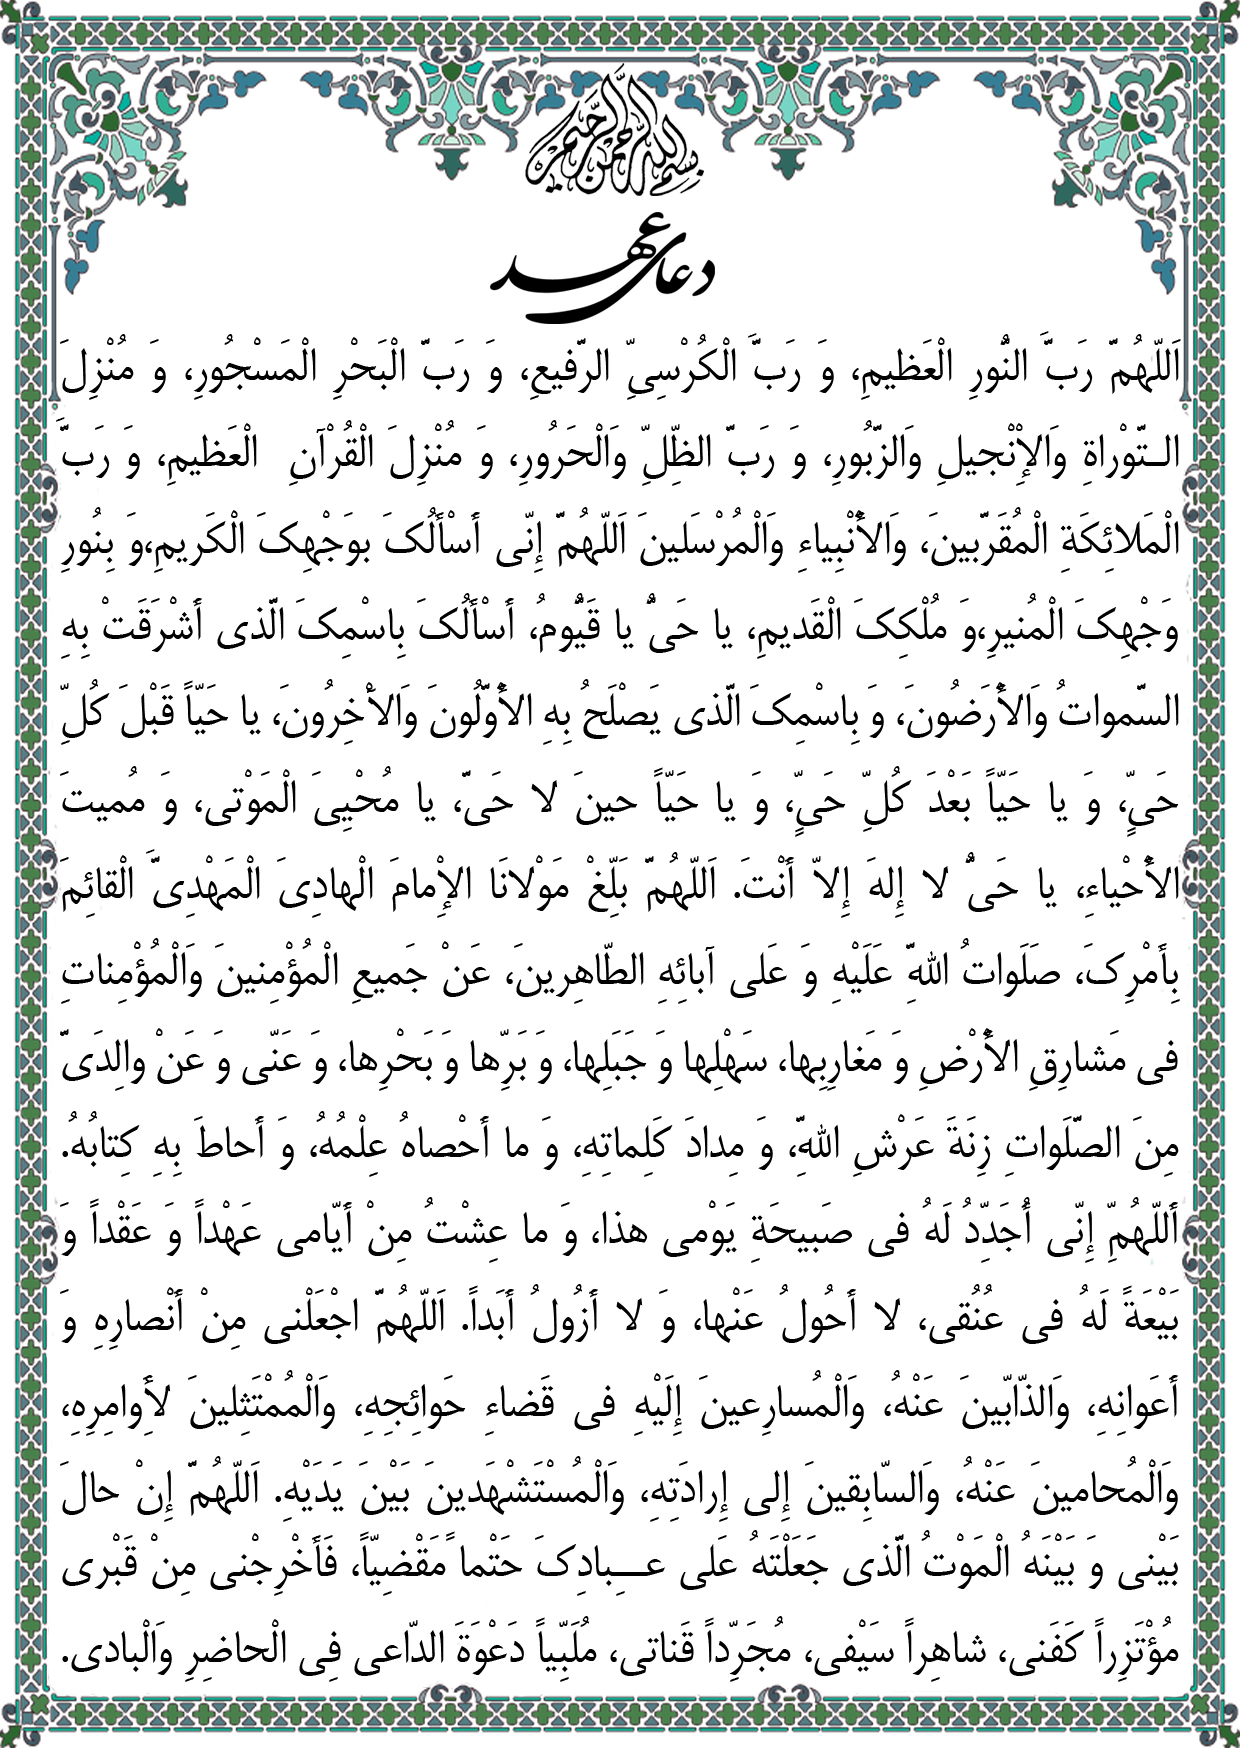 بسم الله الرحمن الرحیم
دعای عهد
اَللّهُمَّ رَبَّ النُّورِ الْعَظیمِ، وَ رَبَّ الْکُرْسِیِّ الرَّفیعِ، وَ رَبَّ الْبَحْرِ الْمَسْجُورِ، وَ مُنْزِلَ
الـتَّوْراةِ وَالإِنْجیلِ وَالزَّبُورِ، وَ رَبَّ الظِّلِّ وَالْحَرُورِ، وَ مُنْزِلَ الْقُرْآنِ الْعَظیمِ، وَ رَبَّ
الْمَلائِکَةِ الْمُقَرَّبینَ، وَالأَنْبِیاءِ وَالْمُرْسَلینَ اَللّهُمَّ إِنّی أَسْأَلُکَ بوَجْهِکَ الْکَریمِ،وَ بِنُورِ
وَجْهِکَ الْمُنیرِ،وَ مُلْکِکَ الْقَدیمِ، یا حَیُّ یا قَیُّومُ، أَسْأَلُکَ بِاسْمِکَ الَّذی أَشْرَقَتْ بِهِ
السَّمواتُ وَالأَرَضُونَ، وَ بِاسْمِکَ الَّذی یَصْلَحُ بِهِ الأَوَّلُونَ وَالأَخِرُونَ، یا حَیّاً قَبْلَ کُلِّ
حَیٍّ، وَ یا حَیّاً بَعْدَ کُلِّ حَیٍّ، وَ یا حَیّاً حینَ لا حَیَّ، یا مُحْیِیَ الْمَوْتی، وَ مُمیتَ
الأَحْیاءِ، یا حَیُّ لا إِلهَ إِلاّ أَنْتَ. اَللّهُمَّ بَلِّغْ مَوْلانَا الإِمامَ الْهادِیَ الْمَهْدِیَّ الْقائِمَ
بِأَمْرِکَ، صَلَواتُ اللهِ عَلَیْهِ وَ عَلی آبائِهِ الطّاهِرینَ، عَنْ جَمیعِ الْمُؤْمِنینَ وَالْمُؤْمِناتِ
فی مَشارِقِ الأَرْضِ وَ مَغارِبِها، سَهْلِها وَ جَبَلِها، وَ بَرِّها وَ بَحْرِها، وَ عَنّی وَ عَنْ والِدَیَّ
مِنَ الصَّلَواتِ زِنَةَ عَرْشِ اللهِ، وَ مِدادَ کَلِماتِهِ، وَ ما أَحْصاهُ عِلْمُهُ، وَ أَحاطَ بِهِ کِتابُهُ.
أَللّهُمِّ إِنّی أُجَدِّدُ لَهُ فی صَبیحَةِ یَوْمی هذا، وَ ما عِشْتُ مِنْ أَیّامی عَهْداً وَ عَقْداً وَ
بَیْعَةً لَهُ فی عُنُقی، لا أَحُولُ عَنْها، وَ لا أَزُولُ أَبَداً. اَللّهُمَّ اجْعَلْنی مِنْ أَنْصارِهِ وَ
أَعَوانِهِ، وَالذّابّینَ عَنْهُ، وَالْمُسارِعینَ إِلَیْهِ فی قَضاءِ حَوائِجِهِ، وَالْمُمْتَثِلینَ لأَِوامِرِهِ،
وَالْمُحامینَ عَنْهُ، وَالسّابِقینَ إِلی إِرادَتِهِ، وَالْمُسْتَشْهَدینَ بَیْنَ یَدَیْهِ. اَللّهُمَّ إِنْ حالَ
بَیْنی وَ بَیْنَهُ الْمَوْتُ الَّذی جَعَلْتَهُ عَلی عـــِبادِکَ حَتْماً مَقْضِیّاً، فَأَخْرِجْنی مِنْ قَبْری
مُؤْتَزِراً کَفَنی، شاهِراً سَیْفی، مُجَرِّداً قَناتی، مُلَبِّیاً دَعْوَةَ الدّاعی فِی الْحاضِرِ وَالْبادی.